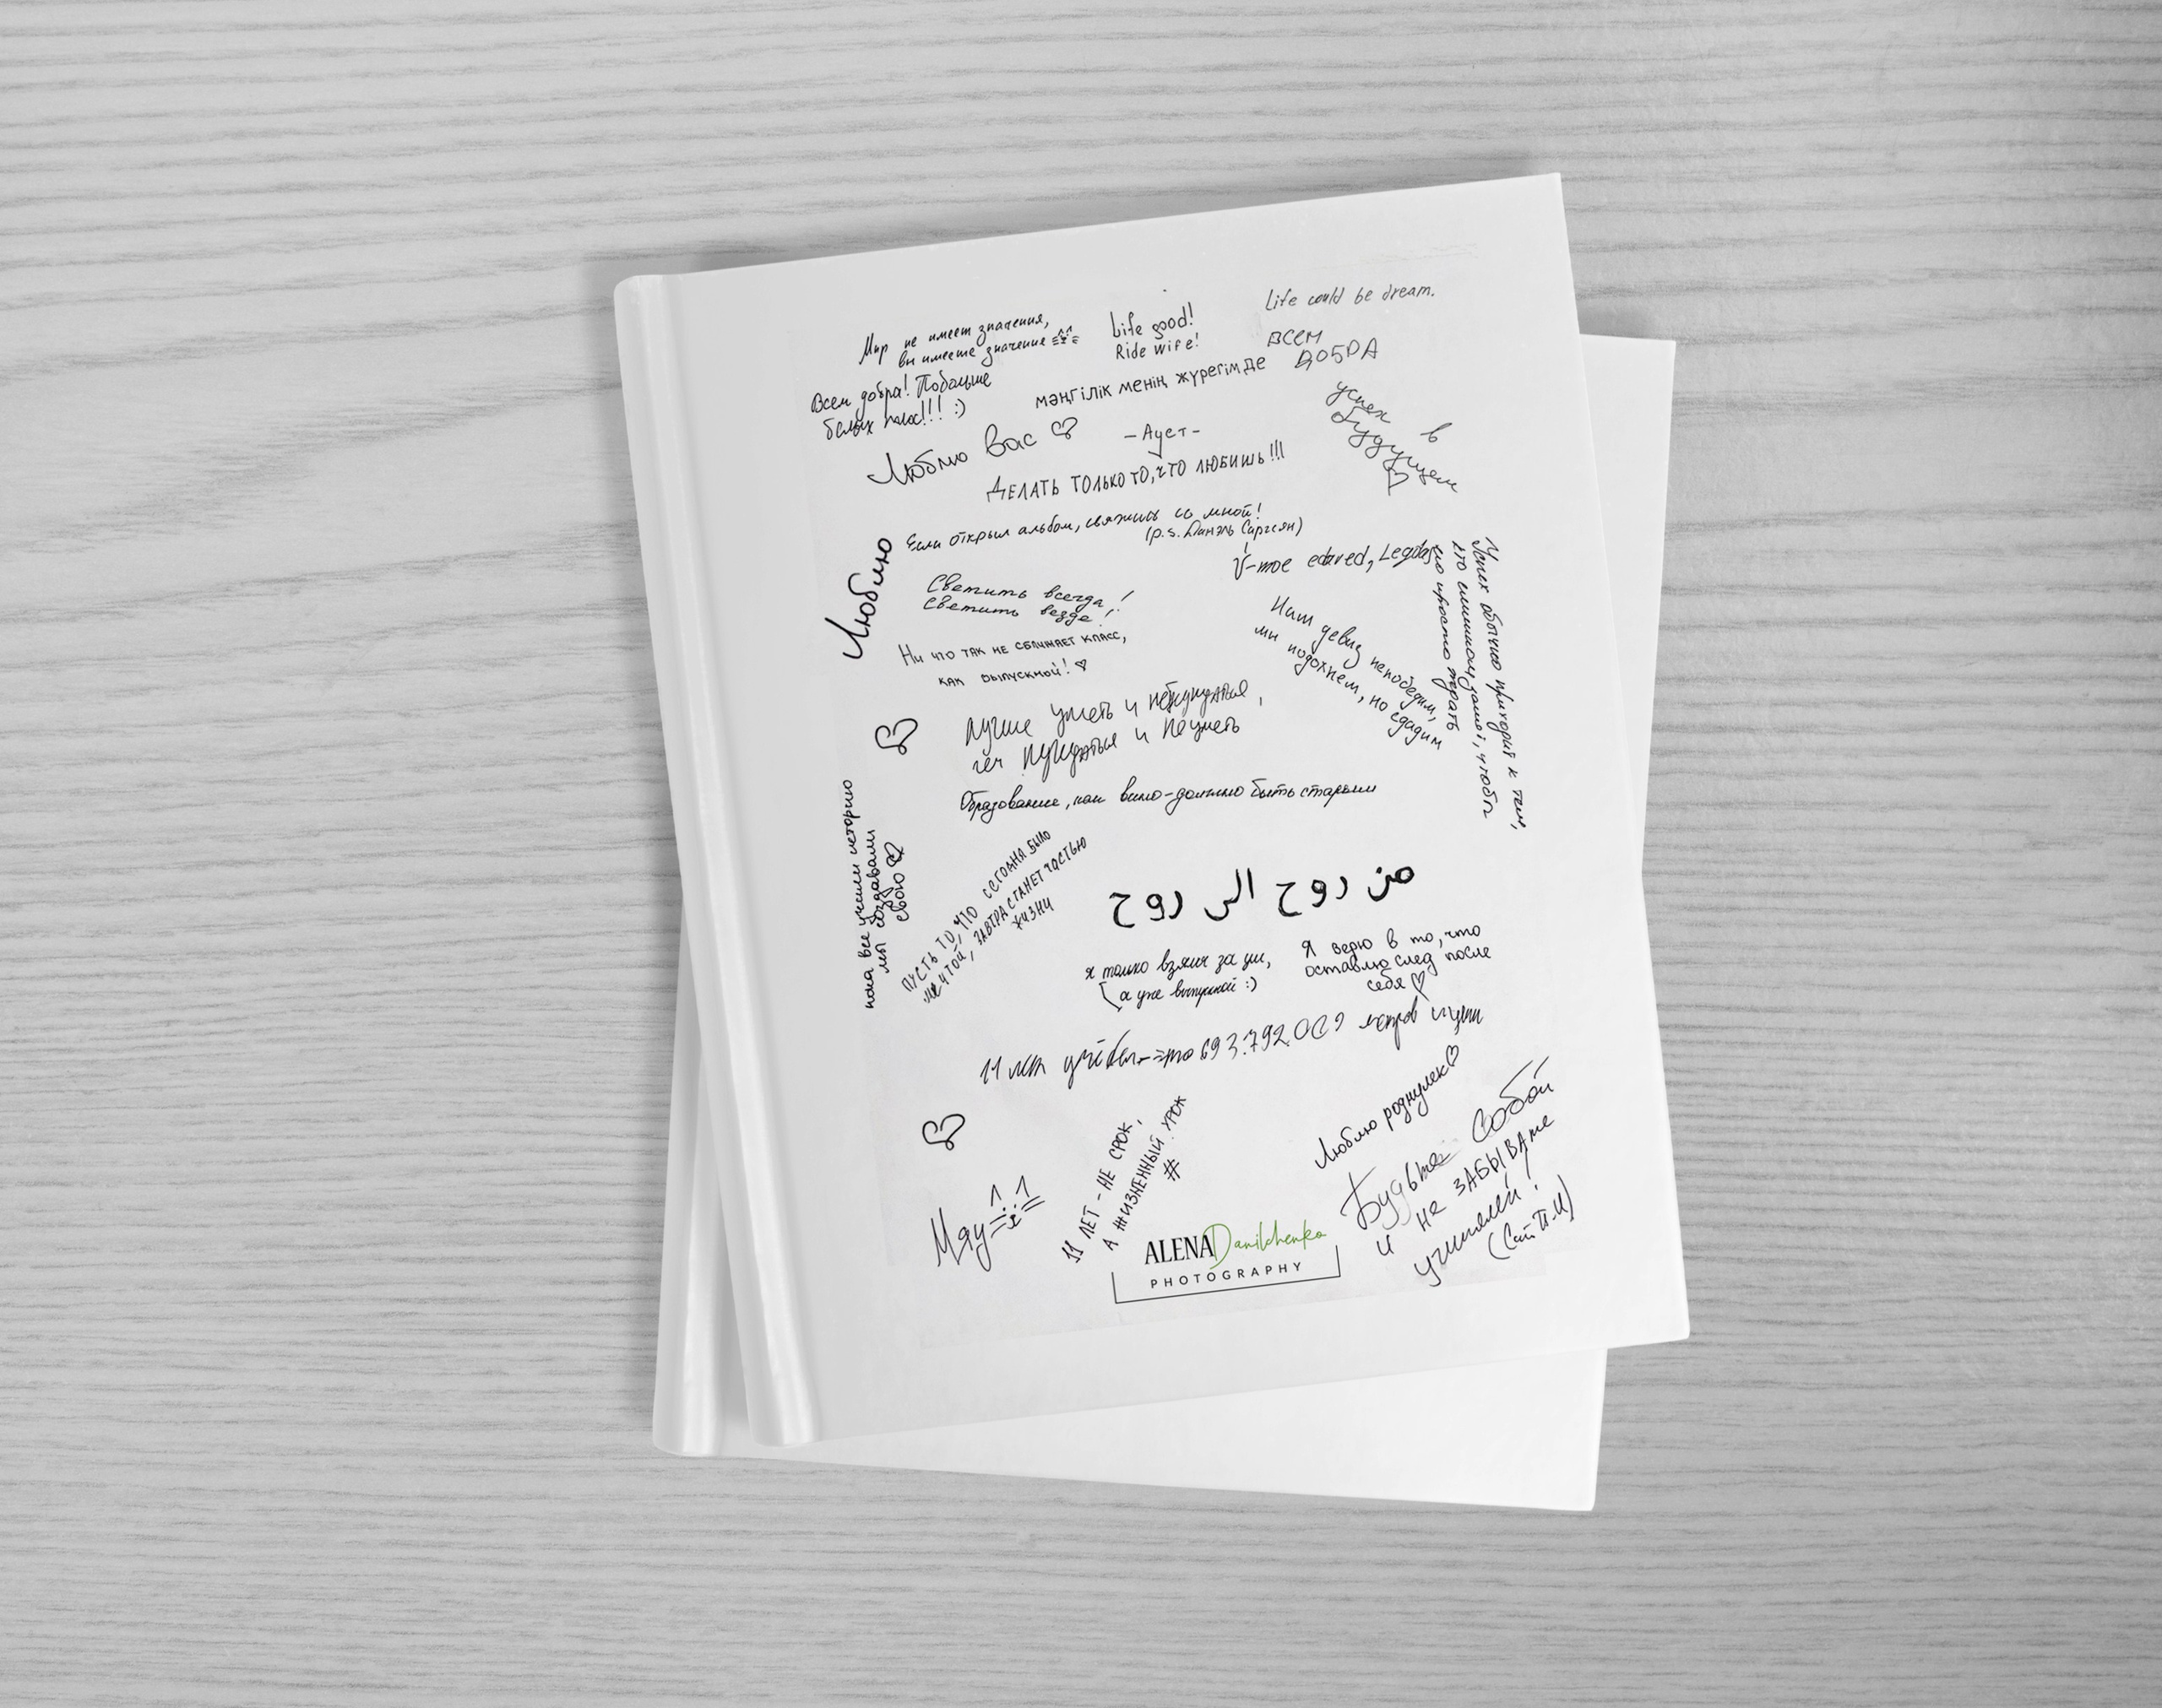 Life could be dream.
Мир не имеет значения,
вы имеете значение
Life good!
Ride wife!
ВСЕМ
ДОБРА
Всем добра! Побольше
белых полос!!! :)
мәңгілік менің жүрегімде
успех в
будущем
Люблю Вас
-Аует-
ДЕЛАТЬ ТОЛЬКО ТО, ЧТО ЛЮБИШЬ!!!
Если открыл альбом, свяжись со мной!
(p.s. Даниэль Саргсян)
Люблю
Светить всегда,!
Светить везде!
Успех обычно приходит к тем,
кто слишком занят, чтобы
его просто ждать
Ни что так не сближает класс,
как выпускной!
Наш девиз непобедим,
мы подохнем, но сдадим
лучше уметь и не нуждаться,
чем нуждаться и не уметь
Образование, как вино-должно быть старым
пока все учили историю
мы создавали
свою
ПУСТЬ ТО, ЧТО СЕГОДНЯ БЫЛО
МЕЧТОЙ, ЗАВТРА СТАНЕТ ЧАСТЬЮ
ЖИЗНИ
من روح الى روح
я только взялся за ум,
а уже выпускной :)
Я верю в то, что
оставлю след после
себя
11 лет учёбы-это 693.792.000 метров
Люблю роднулек
Мяу
11 ЛЕТ - НЕ СРОК,
А ЖИЗНЕННЫЙ УРОК
#
Будьте Собой
и не ЗАБЫВАйте
учителей!
ALENA Danilchenko
PHOTOGRAPHY